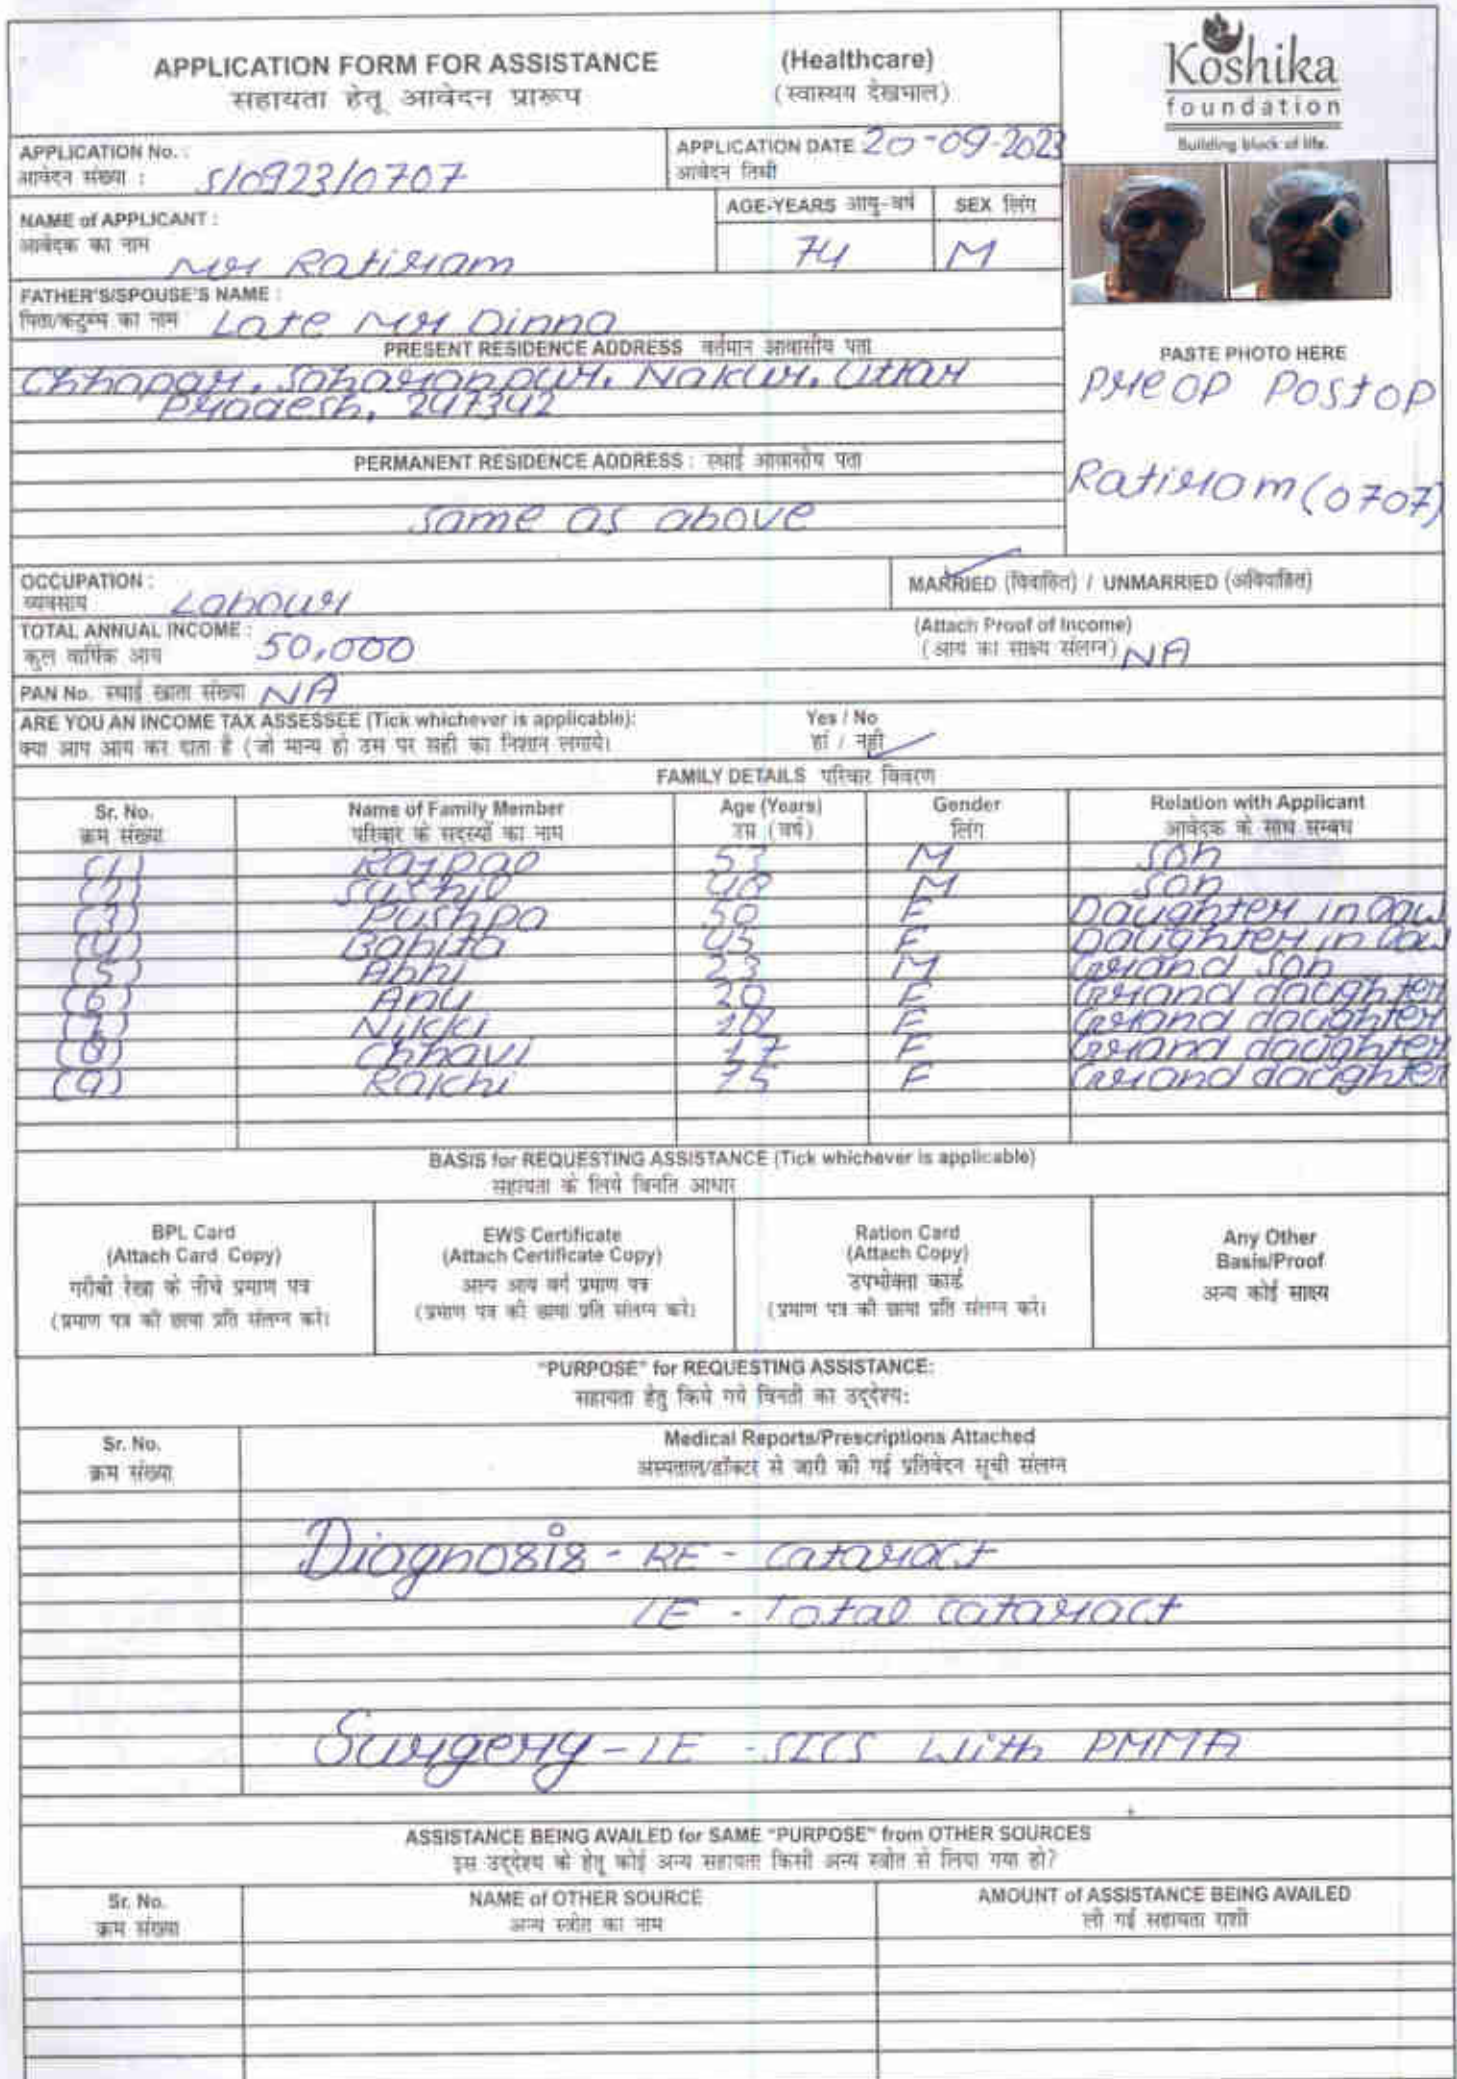 APPLICATION FORM FOR ASSISTANCE (Healthcare)
सहायता हेतू आवेदन प्रारूप (स्वास्थय देखभाल)
Koshika
foundation
Building block of life.
APPLICATION No. :
आवेदन संख्या : S/0923/0707
APPLICATION DATE 20-09-2023
आवेदन तिथी
NAME of APPLICANT :
आवेदक का नाम Mr Ratiram
AGE-YEARS आयु-वर्ष
74
SEX लिंग
M
FATHER'S/SPOUSE'S NAME :
पिता/कटुम्ब का नाम Late Mr Dinna
PRESENT RESIDENCE ADDRESS वर्तमान आवासीय पता
Chhapar, Saharanpur, Nakur, Uttar
Pradesh, 247342
PASTE PHOTO HERE
Preop Postop
Ratiram (0707)
PERMANENT RESIDENCE ADDRESS : स्थाई आवासीय पता
Same as above
OCCUPATION :
व्यवसाय Labour
MARRIED (विवाहित) / UNMARRIED (अविवाहित)
TOTAL ANNUAL INCOME :
कुल वार्षिक आय 50,000
(Attach Proof of Income)
(आय का साक्ष्य संलग्न) NA
PAN No. स्थाई खाता संख्या NA
ARE YOU AN INCOME TAX ASSESSEE (Tick whichever is applicable): Yes / No
क्या आप आय कर दाता है (जो मान्य हो उस पर सही का निशान लगाये। हां / नही
FAMILY DETAILS परिवार विवरण
Sr. No. Name of Family Member Age (Years) Gender Relation with Applicant
क्रम संख्या परिवार के सदस्यों का नाम उम्र (वर्ष) लिंग आवेदक के साथ सम्बंध
(1) M Son
(2) Sushil 48 M Son
(3) Pushpa 50 F Daughter in law
(4) Babita 45 F Daughter in law
(5) Abhi 23 M Grand son
(6) Anu 20 F Grand daughter
(7) Nikki F Grand daughter
(8) Chhavi 17 F Grand daughter
(9) F Grand daughter
BASIS for REQUESTING ASSISTANCE (Tick whichever is applicable)
सहायता के लिये विनति आधार
BPL Card
(Attach Card Copy)
गरीबी रेखा के नीचे प्रमाण पत्र
(प्रमाण पत्र की छाया प्रति संलग्न करे।
EWS Certificate
(Attach Certificate Copy)
अल्प आय वर्ग प्रमाण पत्र
(प्रमाण पत्र की छाया प्रति संलग्न करे।
Ration Card
(Attach Copy)
उपभोक्ता कार्ड
(प्रमाण पत्र की छाया प्रति संलग्न करे।
Any Other
Basis/Proof
अन्य कोई साक्ष्य
"PURPOSE" for REQUESTING ASSISTANCE:
सहायता हेतु किये गये विनती का उद्देश्य:
Sr. No. Medical Reports/Prescriptions Attached
क्रम संख्या अस्पताल/डॉक्टर से जारी की गई प्रतिवेदन सूची संलग्न
Diagnosis - RE - Cataract
LE - Total cataract
Surgery - LE - SICS with PMMA
ASSISTANCE BEING AVAILED for SAME "PURPOSE" from OTHER SOURCES
इस उद्देश्य के हेतु कोई अन्य सहायता किसी अन्य स्त्रोत से लिया गया हो?
Sr. No. NAME of OTHER SOURCE AMOUNT of ASSISTANCE BEING AVAILED
क्रम संख्या अन्य स्त्रोत का नाम ली गई सहायता राशी